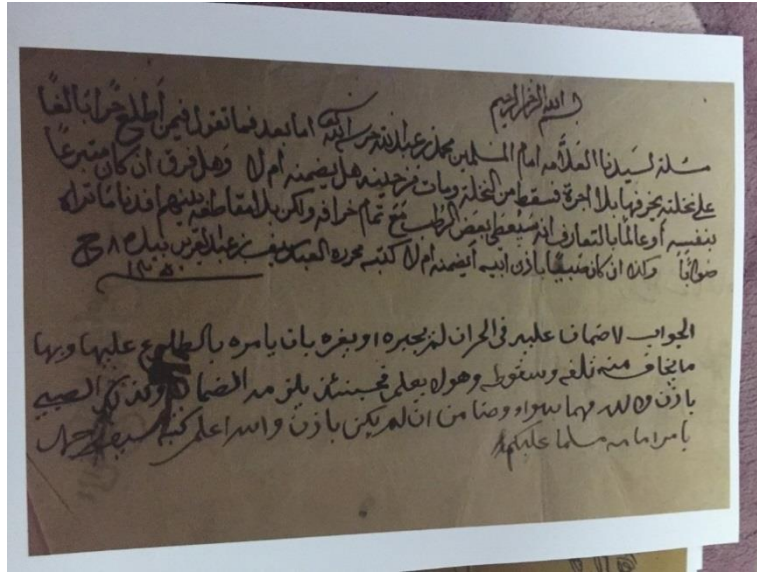 بسم الله الرحمن الرحيم
مسئلة لسيدنا العلامه امام المسلمين محمد بن عبدالله حرسه الله اما بعد فما تقول فيمن أطلع حرًا بالغًا
على نخلته يخرفها بلا اجرة فسقط من النخلة ومات من حينه هل يضمنه ام لا وهل فرق ان كان متبرعًا
بنفسه أو عالمًا بالتعارف انه سيعطى بعض الرطب مع تمام خرافه ولكن بلا مقاطعة بينهم افدنا ما تراه
صوابًا وكذا ان كان صبيًا باذن ابيه أيضمنه ام لا كتبه محرره العبد سيف بن عبدالعزيز بيده ٨ ج
الجواب لا ضمان عليه في الحر ان لم يجبره او يغره بان يامره بالطلوع عليها وبها
ما يخاف منه تلفه وسقوطه وهو لا يعلم فحينئذ يلزمه الضمان وكذلك الصبي
باذن والده فهما سواء وضامن ان لم يكن باذن والله اعلم كتبه سيف
بامر امامه مسلما عليكم